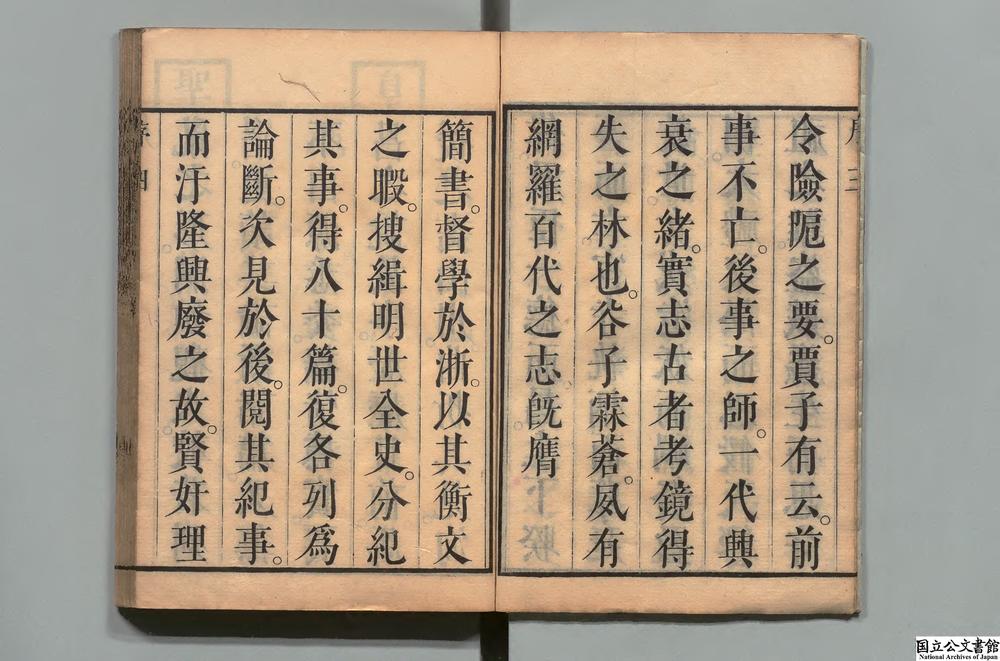 令險阨之要。賈子有云。前
事不亡。後事之師。一代興
衰之緒。實志古者考鏡得
失之林也。谷子霖蒼。夙有
網羅百代之志。旣膺
簡書。督學於浙。以其衡文
之暇。搜緝明世全史。分紀
其事。得八十篇。復各列爲
論斷。次見於後。閱其紀事。
而汙隆興廢之故。賢奸理
序 三
序 四
国立公文書館
National Archives of Japan